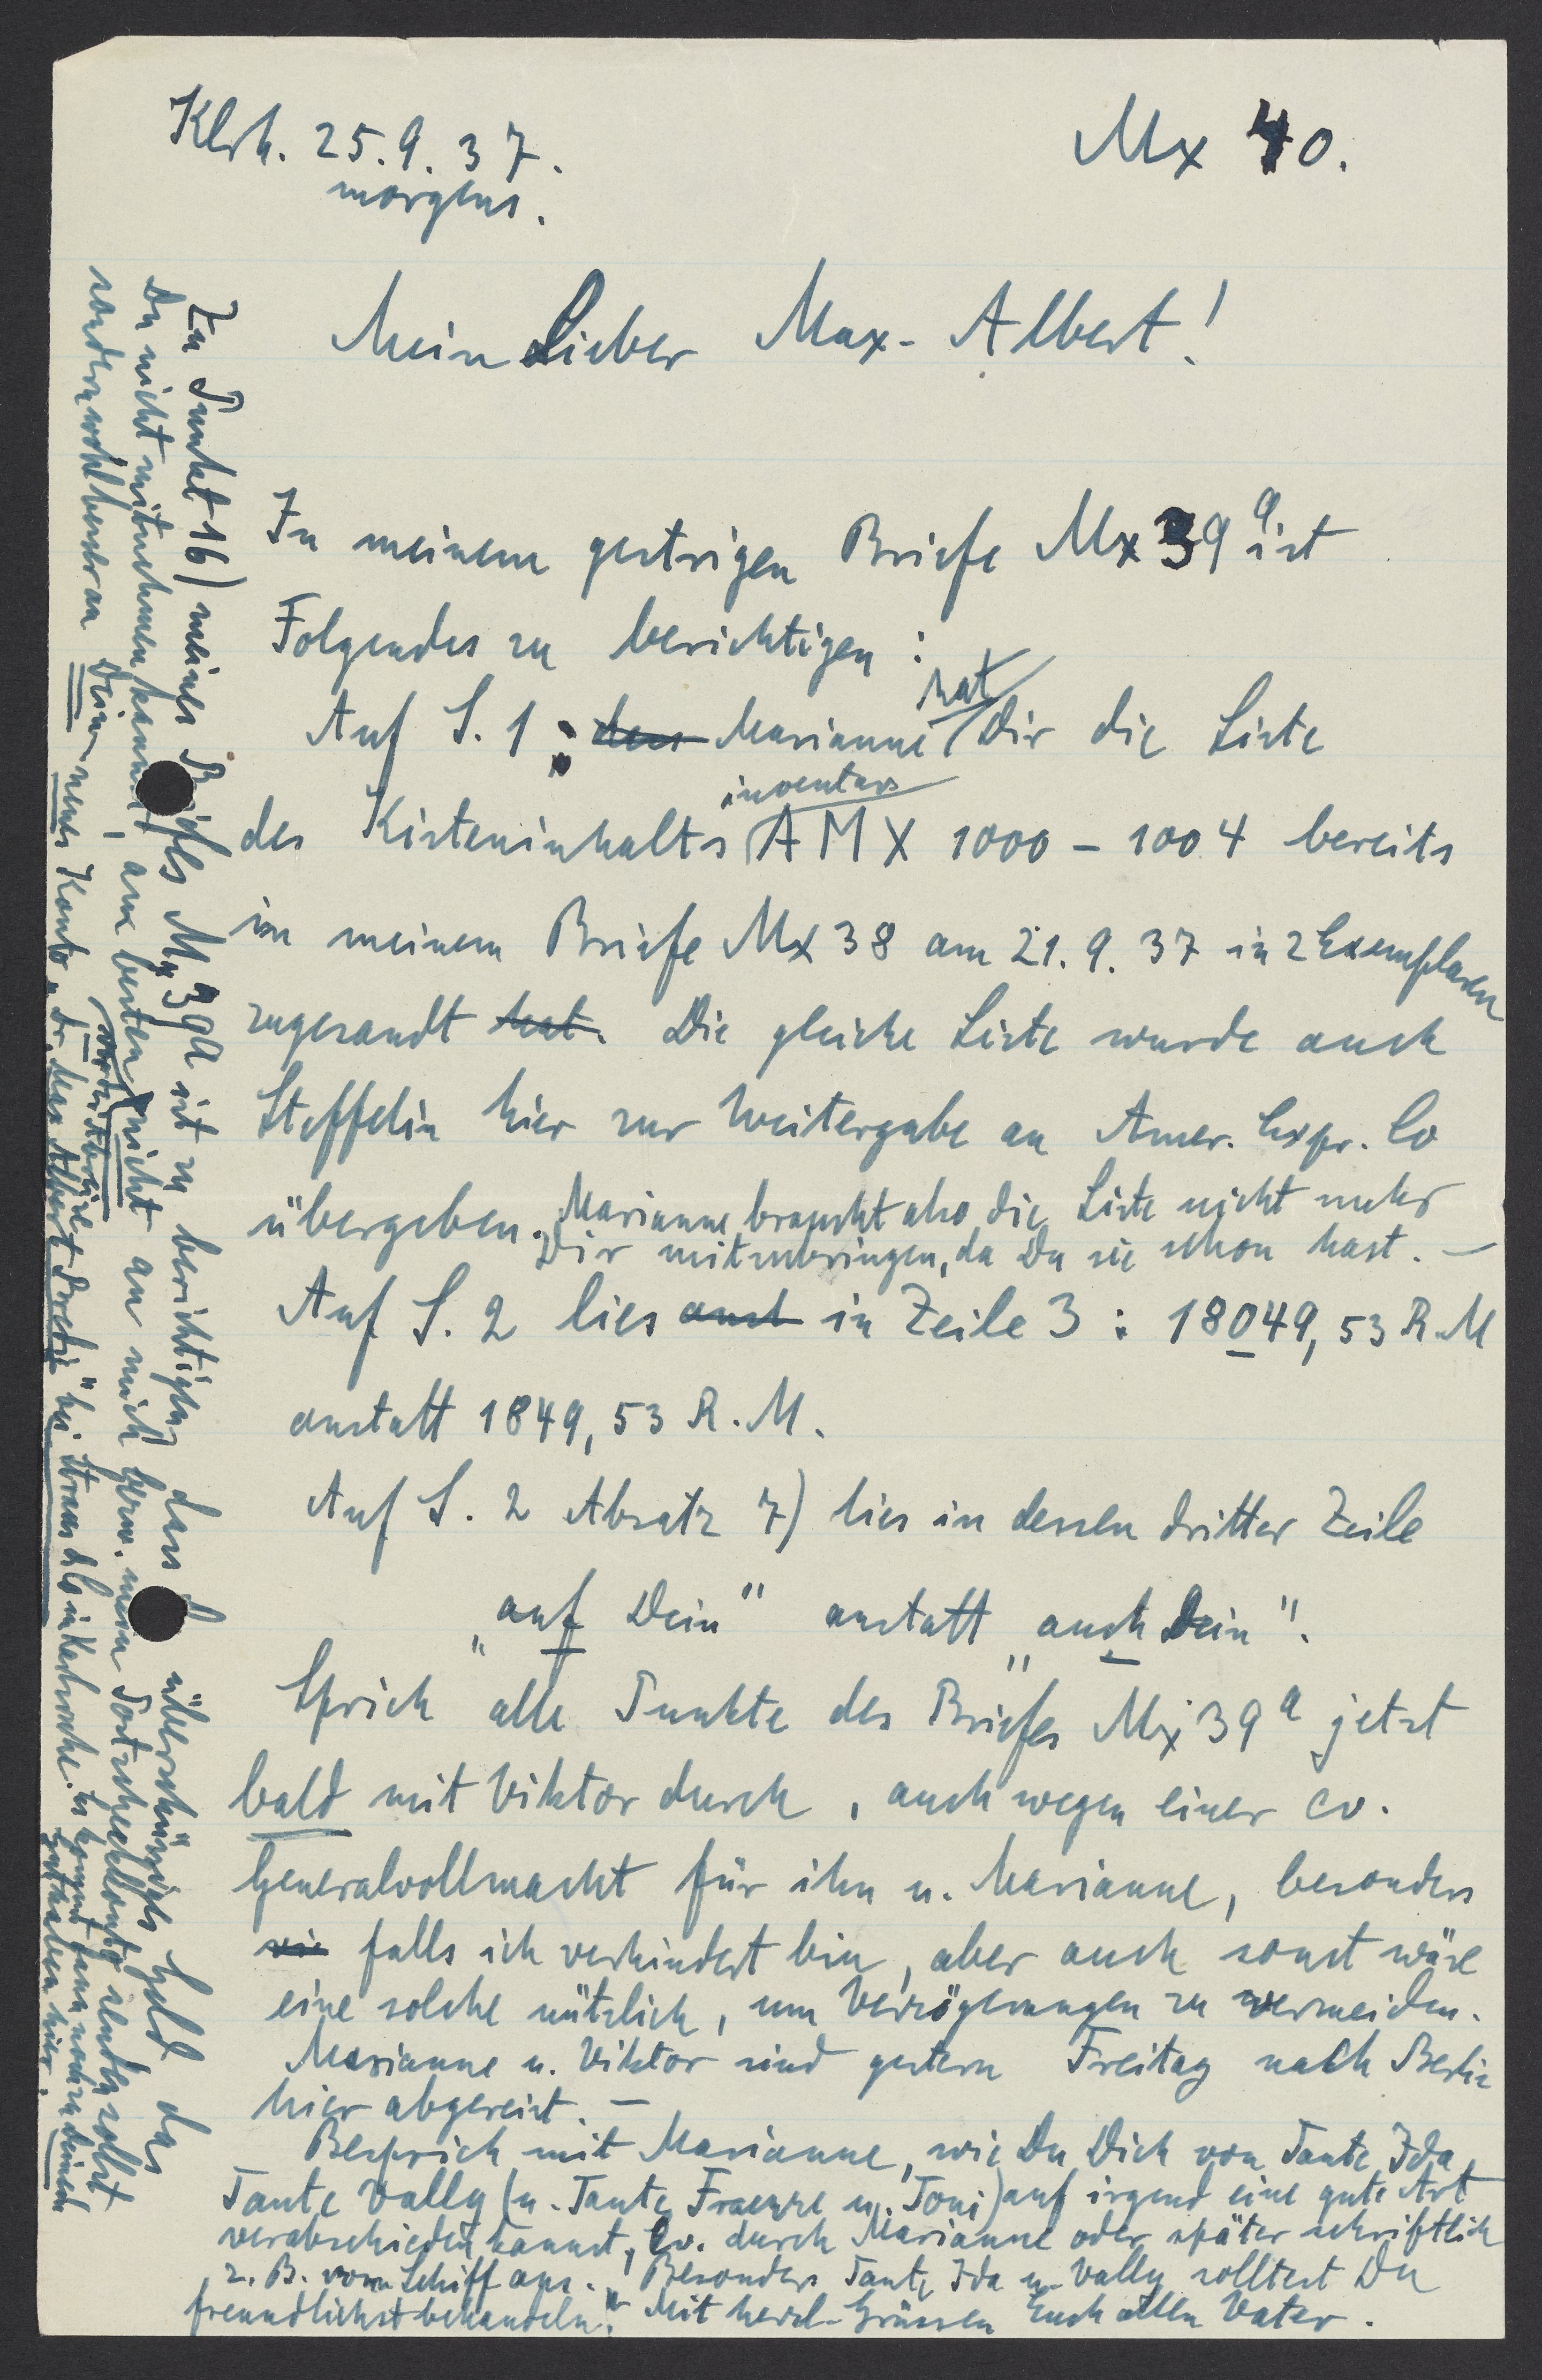 Klrh. 25.9.37.
morgens.
Mx 40.
Mein Lieber Max-Albert!
In meinem gestrigen Briefe Mx 39a ist
Folgendes zu berichtigen:
Auf S. 1: dass Marianne hat Dir die Liste
des Kisteninhalts inventars AMX 1000 - 1004 bereits
in meinem Briefe Mx 38 am 21.9.37 in 2 Exemplaren
zugesandt hat. Die gleiche Liste wurde auch
Steffelin hier zur Weitergabe an Amer. Expr. Co
übergeben. Marianne braucht also die Liste nicht mehr
Dir mitzubringen, da Du sie schon hast. —
Auf S. 2 lies auch in Zeile 3: 18049,53 R.M
anstatt 1849,53 R.M.
Auf S. 2 Absatz 7) lies in dessen dritter Zeile
„auf Dein" anstatt „auch Dein".
Sprich alle Punkte des Briefes Mx 39a jetzt
bald mit Viktor durch, auch wegen einer ev.
Generalvollmacht für ihn u. Marianne, besonders
wie falls ich verhindert bin, aber auch sonst wäre
eine solche nützlich, um Verzögerungen zu vermeiden.
Marianne u. Viktor sind gestern Freitag nach Berlin
hier abgereist. —
Besprich mit Marianne, wie Du Dich von Tante Ida,
Tante Vally (u. Tante Fraenze u. Toni) auf irgend eine gute Art
verabschieden kannst, ev. durch Marianne oder später schriftlich
z. B. vom Schiff aus. Besonders Tante Ida u. Vally solltest Du
freundlichst behandeln. Mit herzl. Grüssen Euch allen Vater.
Zu Punkt 16) meines Briefes Mx 39a ist zu berichtigen, dass überschüssiges Geld das
Du nicht mitnehmen kannst, am besten nicht an mich bezw. mein Postscheckkonto senden sollst
sondern wohl besser an Dein neues Konto „Dr. Max Albert Bredig" bei Straus & Co in Karlsruhe. Es kommt dann noch zu deinem
Guthaben hier.